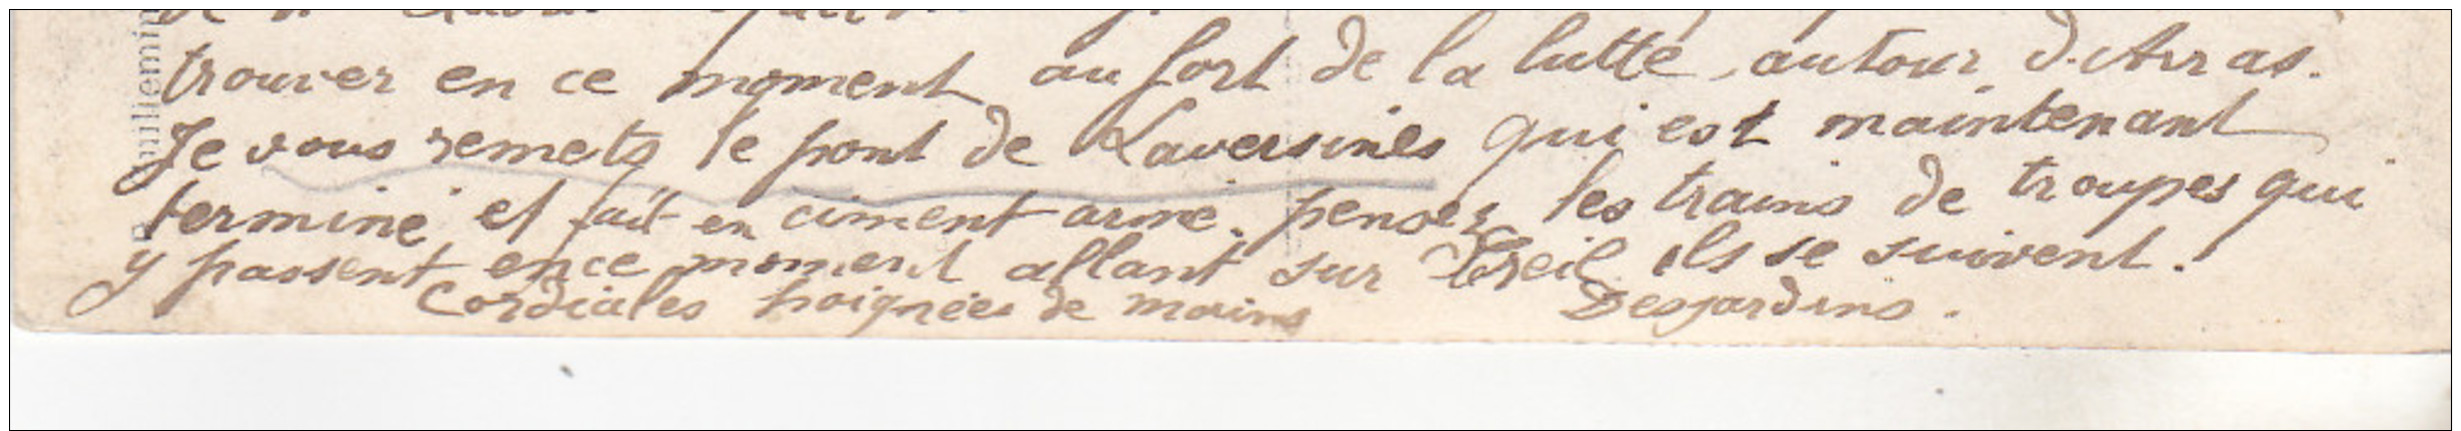 trouver en ce moment au fort de la lutte, autour d'Arras.
Je vous remets le pont de Laversines qui est maintenant
terminé et fait en ciment armé. pensez les trains de troupes qui
y passent en ce moment allant sur Creil ils se suivent.
Cordiales poignées de mains Desjardins.